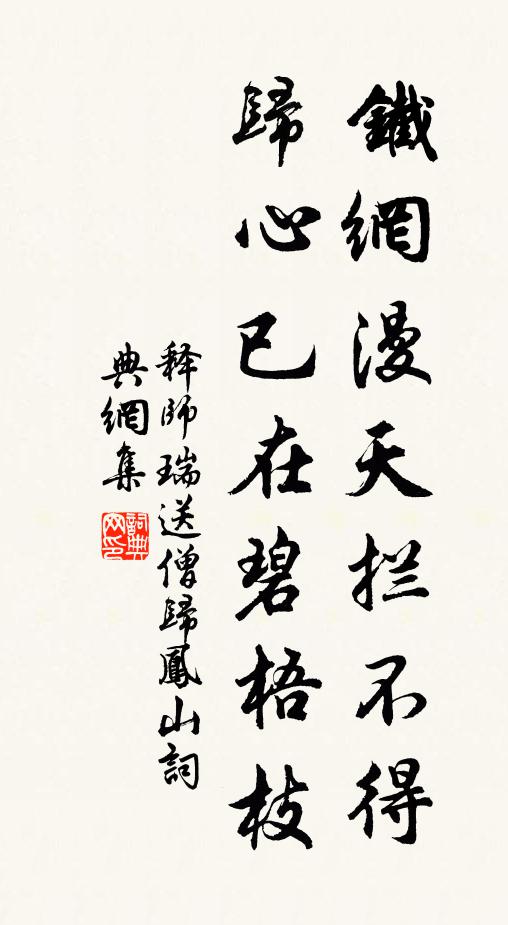 鐵網漫天拦不得
歸心已在碧梧枝
释師瑞送僧歸鳳山詞
典網集
詞典網印